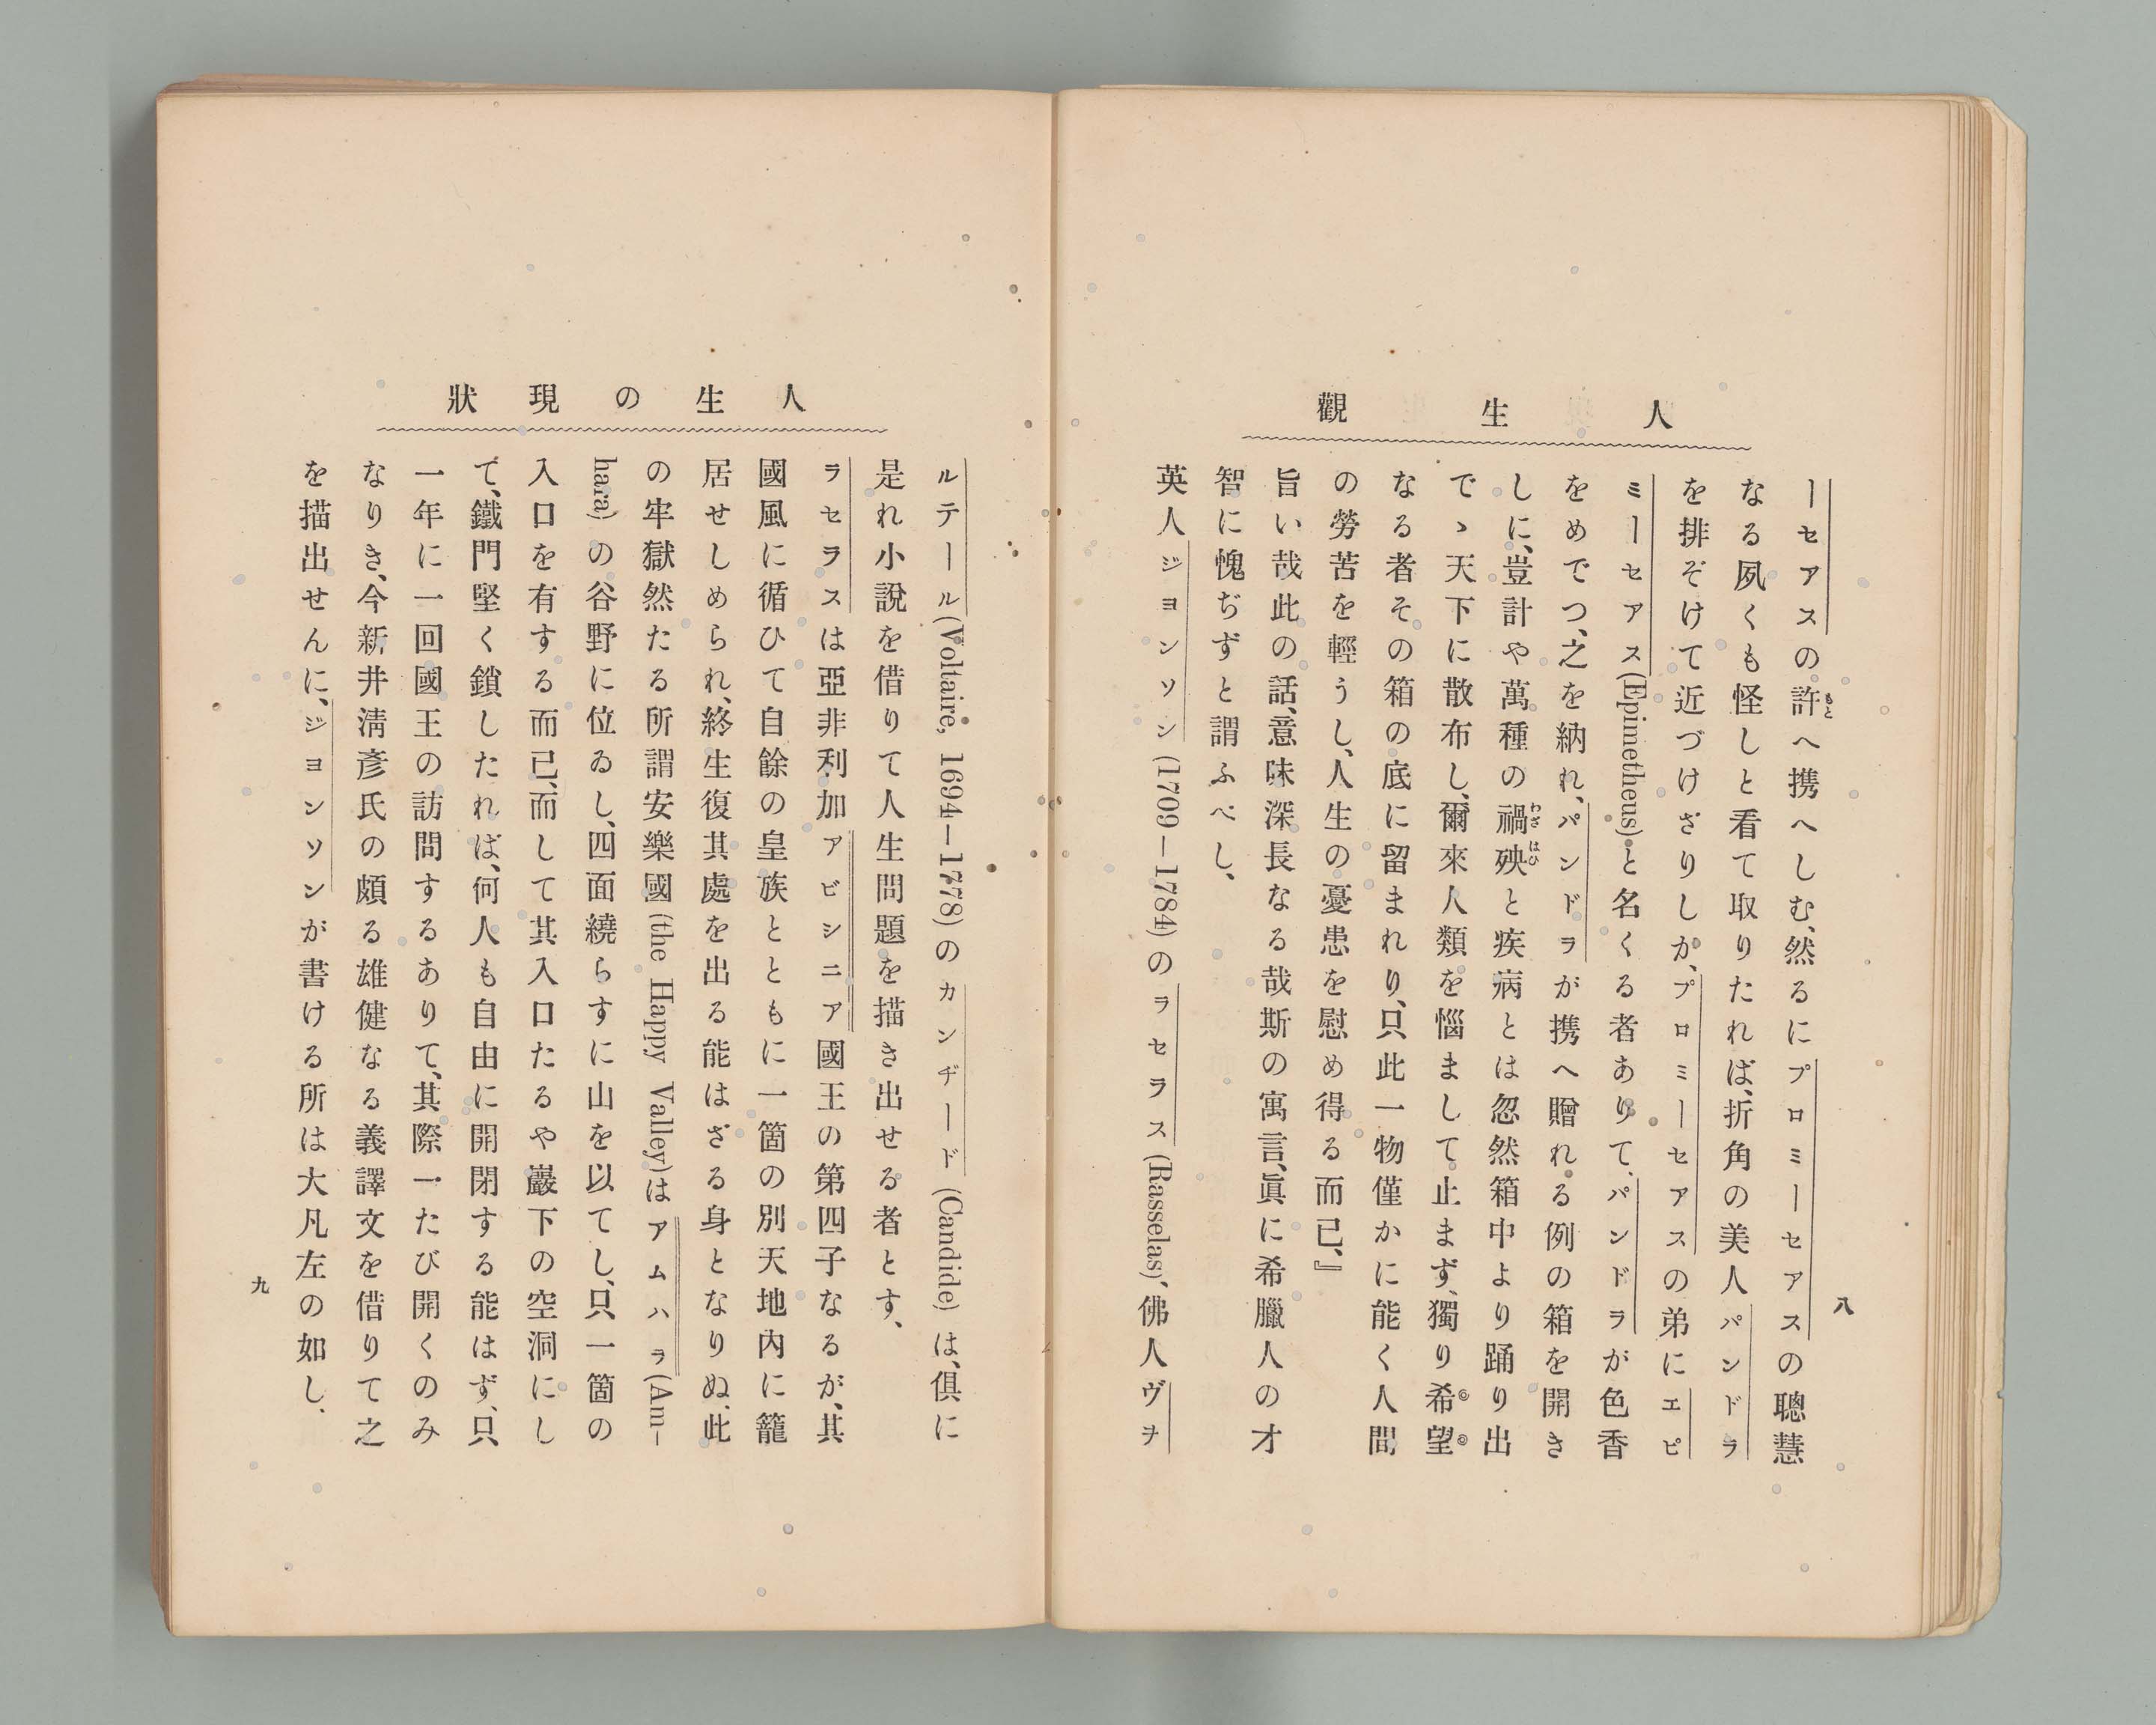 人生觀
ーセアスの許へ携へしむ、然るにプロミーセアスの聰慧
なる夙くも怪しと看て取りたれば、折角の美人パンドラ
を排ぞけて近づけざりしか、プロミーセアスの弟にエピ
ミーセアス(Epimetheus)と名くる者ありて、パンドラが色香
をめでつ、之を納れ、パンドラが携へ贈れる例の箱を開き
しに、豈計や萬種の禍殃と疾病とは忽然箱中より踊り出
でゝ天下に散布し、爾來人類を惱まして止まず、獨り希望
なる者その箱の底に留まれり、只此一物僅かに能く人間
の勞苦を輕うし、人生の憂患を慰め得る而已、』
旨い哉此の話、意味深長なる哉斯の寓言、眞に希臘人の才
智に愧ぢずと謂ふべし、
英人ジヨンソン(1709—1784)のラセラス(Rasselas)、佛人ヴヲ
八
人生の現狀
ルテール(Voltaire, 1694—1778)のカンヂード(Candide)は、俱に
是れ小說を借りて人生問題を描き出せる者とす、
ラセラスは亞非利加アビシニア國王の第四子なるが、其
國風に循ひて自餘の皇族とともに一箇の別天地內に籠
居せしめられ、終生復其處を出る能はざる身となりぬ、此
の牢獄然たる所謂安樂國(the Happy Valley)はアムハラ(Am-
hara)の谷野に位ゐし、四面繞らすに山を以てし、只一箇の
入口を有する而已、而して其入口たるや巖下の空洞にし
て、鐵門堅く鎖したれば、何人も自由に開閉する能はず、只
一年に一回國王の訪問するありて、其際一たび開くのみ
なりき、今新井淸彥氏の頗る雄健なる義譯文を借りて之
を描出せんに、ジヨンソンが書ける所は大凡左の如し、
九